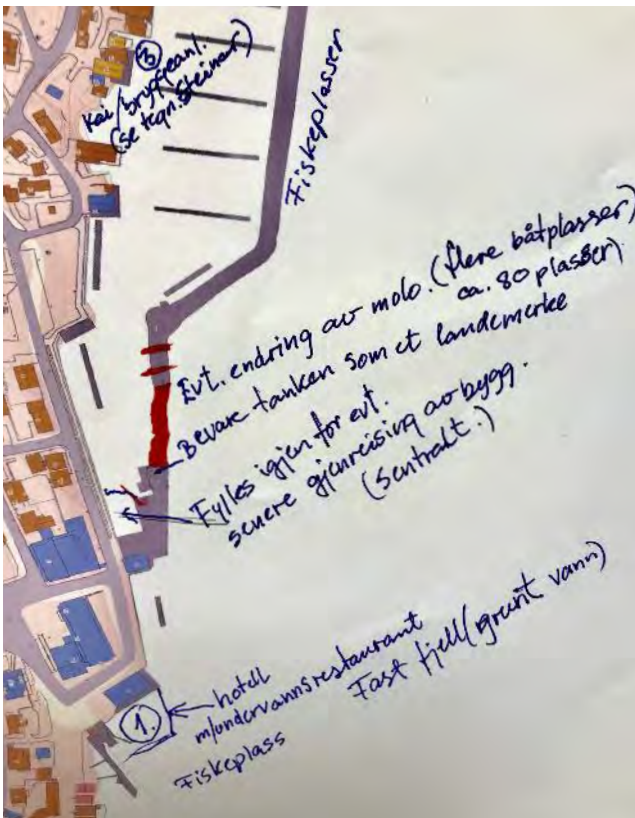 3
Kai/bryggeanl.
(se tegn. Steiner)
Fiskeplasser
Evt. endring av molo. (flere båtplasser)
ca. 80 plasser)
Bevare tanken som et landemerke
Fylles igjen for evt.
senere gjenreising av bygg.
(Sentralt.)
1.
hotell
m/undervannsrestaurant
Fiskeplass
Fast fjell (grunt vann)